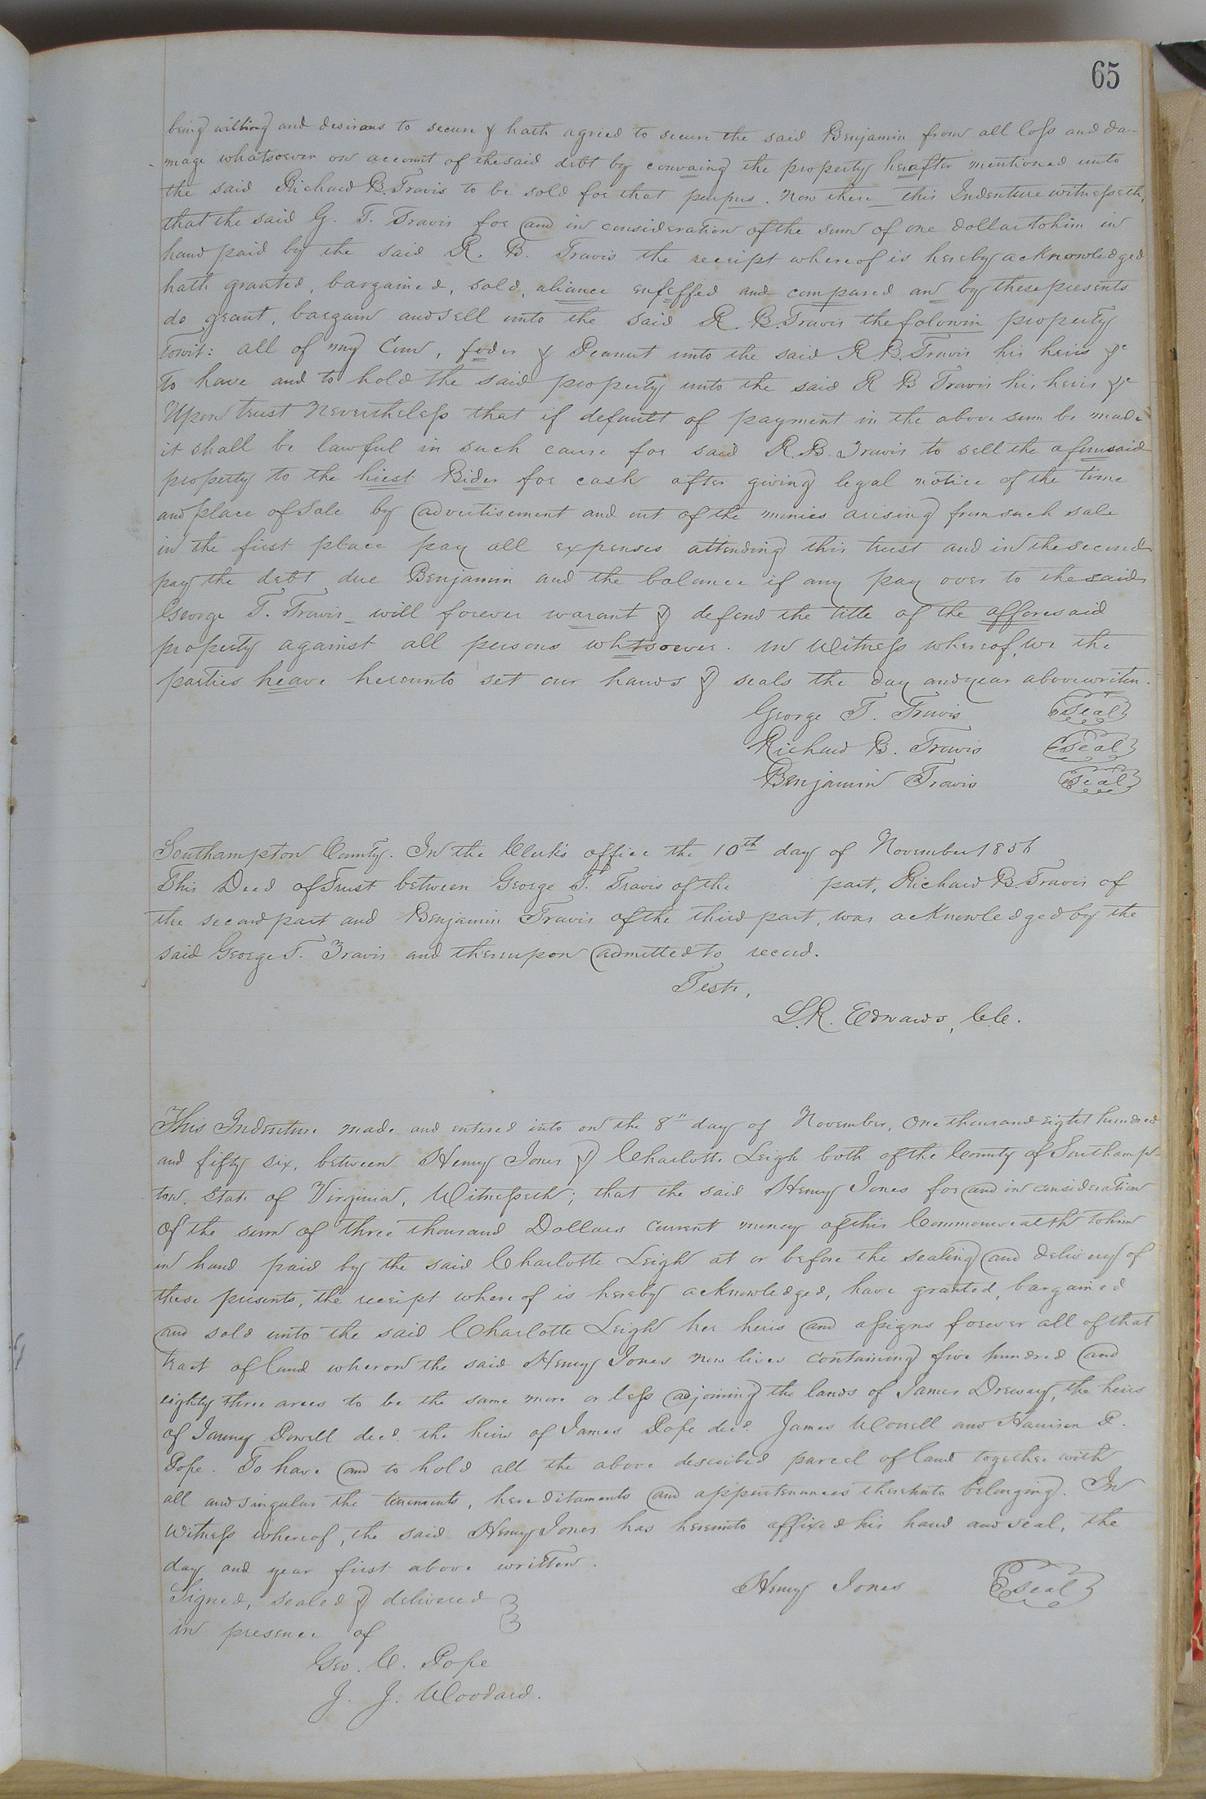 65
being willing and desirous to secure & hath agreed to secure the said Benjamin from all loss and da-
mage whatsoever on account of the said debt by convaing the property hereafter mentioned unto
the said Richard B. Travis to be sold for that purpus. Now there this Indenture witnesseth,
that the said G. T. Travis for and in consideration of the sum of one dollar to him in
hand paid by the said R. B. Travis the receipt whereof is hereby acknowledged
hath granted, bargained, sold, aliance enfeffed and compared and by these presents
do grant, bargain and sell unto the said R. B. Travis the folowin property
Towit: all of my Curn, foder & Peanut unto the said R. B. Travis his heirs &c
To have and to hold the said property unto the said R B Travis his heirs &c
Upon trust Nevertheless that if default of payment in the above sum be made
it shall be lawful in such cause for said R. B. Travis to sell the aforusaid
property to the hiest Bider for cash after giving legal notice of the time
and place of Sale by advertisement and out of the monies arising from such sale
in the first place pay all expenses attending this trust and in the second
pay the debt due Benjamin and the balance if any pay over to the said
George T. Travis will forever warant & defend the title of the afforesaid
property against all persons whtsoever. In Witness whereof, we the
parties heave hereunto set our hands & seals the day and year above writen.
George T. Travis Seal
Richard B. Travis Seal
Benjamin Travis Seal
Southampton County. In the Clerk's office the 10th day of November 1856
This Deed of Trust between George T. Travis of the part, Richard B. Travis of
the second part and Benjamin Travis of the third part, was acknowledged by the
said George T. Travis and thereupon admitted to record.
Teste,
L. R. Edwards, C.C.
This Indenture made and entered into on the 8th day of November, One thousand eight hundred
and fifty six, between Henry Jones & Charlotte Leigh both of the County of Southamp-
ton, State of Virginia, Witnesseth; that the said Henry Jones for and in consideration
of the sum of three thousand Dollars current money of this Commonwealth to him
in hand paid by the said Charlotte Leigh at or before the sealing and delivery of
these presents, the receipt where of is hereby acknowledged, have granted, bargained
and sold unto the said Charlotte Leigh her heirs and assigns forever all of that
tract of land wheron the said Henry Jones now lives containing five hundred and
eighty three acres to be the same more or less adjoining the lands of James Drewry, the heirs
of Powell decd. the heirs of James Pope decd. James Worrell and Harrison P.
Pope. To have and to hold all the above described parcel of land together with
all and singular the tenements, hereditaments and appurtenances thereunto belonging. In
Witness whereof, the said Henry Jones has hereunto affixed his hand and seal, the
day and year first above written.
Henry Jones Seal
Signed, sealed & delivered
in presence of
Geo. W. Pope
J. J. Woodard.